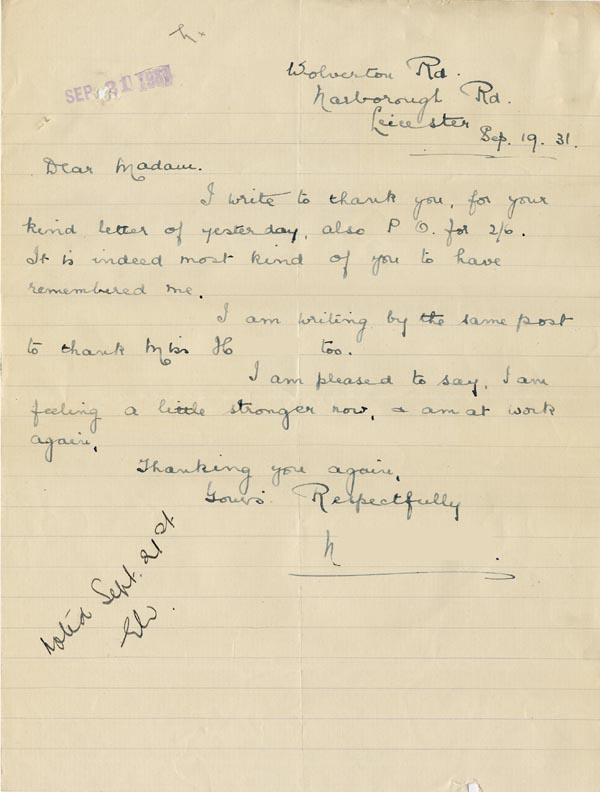 SEP 21 1931
Wolverton Rd.
Narborough Rd.
Leicester
Sep. 19. 31.
Dear Madam.
I write to thank you, for your
kind letter of yesterday, also P O. for 2/6.
It is indeed most kind of you to have
remembered me.
I am writing by the same post
to thank Miss H too.
I am pleased to say, I am
feeling a little stronger now, & am at work
again,
Thanking you again,
Yours Respectfully
N
Noted Sept. 21st